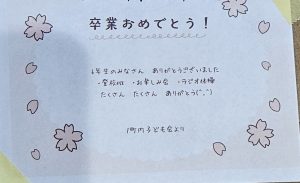 卒業おめでとう！
6年生のみなさん ありがとうございました
・登校班 ・お楽しみ会 ・ラジオ体操
たくさん たくさん ありがとう(^^)
町内子ども会より